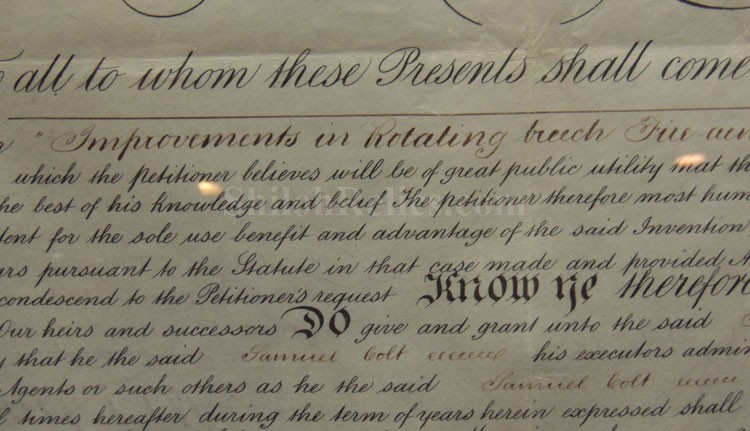 all to whom these Presents shall come
" Improvements in Rotating breech Fire-arm
which the petitioner believes will be of great public utility that th
he best of his knowledge and belief The petitioner therefore most hum
tent for the sole use benefit and advantage of the said Invention
ars pursuant to the Statute in that case made and provided A
condescend to the Petitioner's request Know Ye therefore
Our heirs and successors DO give and grant unto the said
y that he the said Samuel Colt his executors admin
Agents or such others as he the said Samuel Colt
l times hereafter during the term of years herein expressed shall
ShilohRelics.com